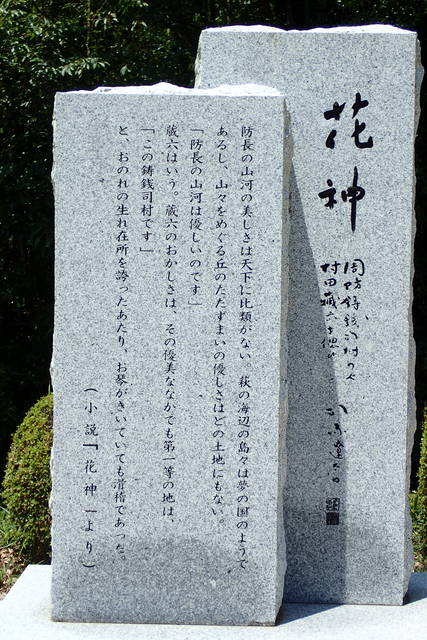 花神
周防鋳銭司村の人
村田蔵六を偲び
司馬遼太郎
防長の山河の美しさは天下に比類がない。萩の海辺の島々は夢の国のようで
あるし、山々をめぐる丘のたたずまいの優しさはどの土地にもない。
「防長の山河は優しいのです」
蔵六はいう。蔵六のおかしさは、その優美ななかでも第一等の地は、
「この鋳銭司村です」
と、おのれの生れ在所を誇ったあたり、お琴がきいていても滑稽であった。
(小説「花神」より)